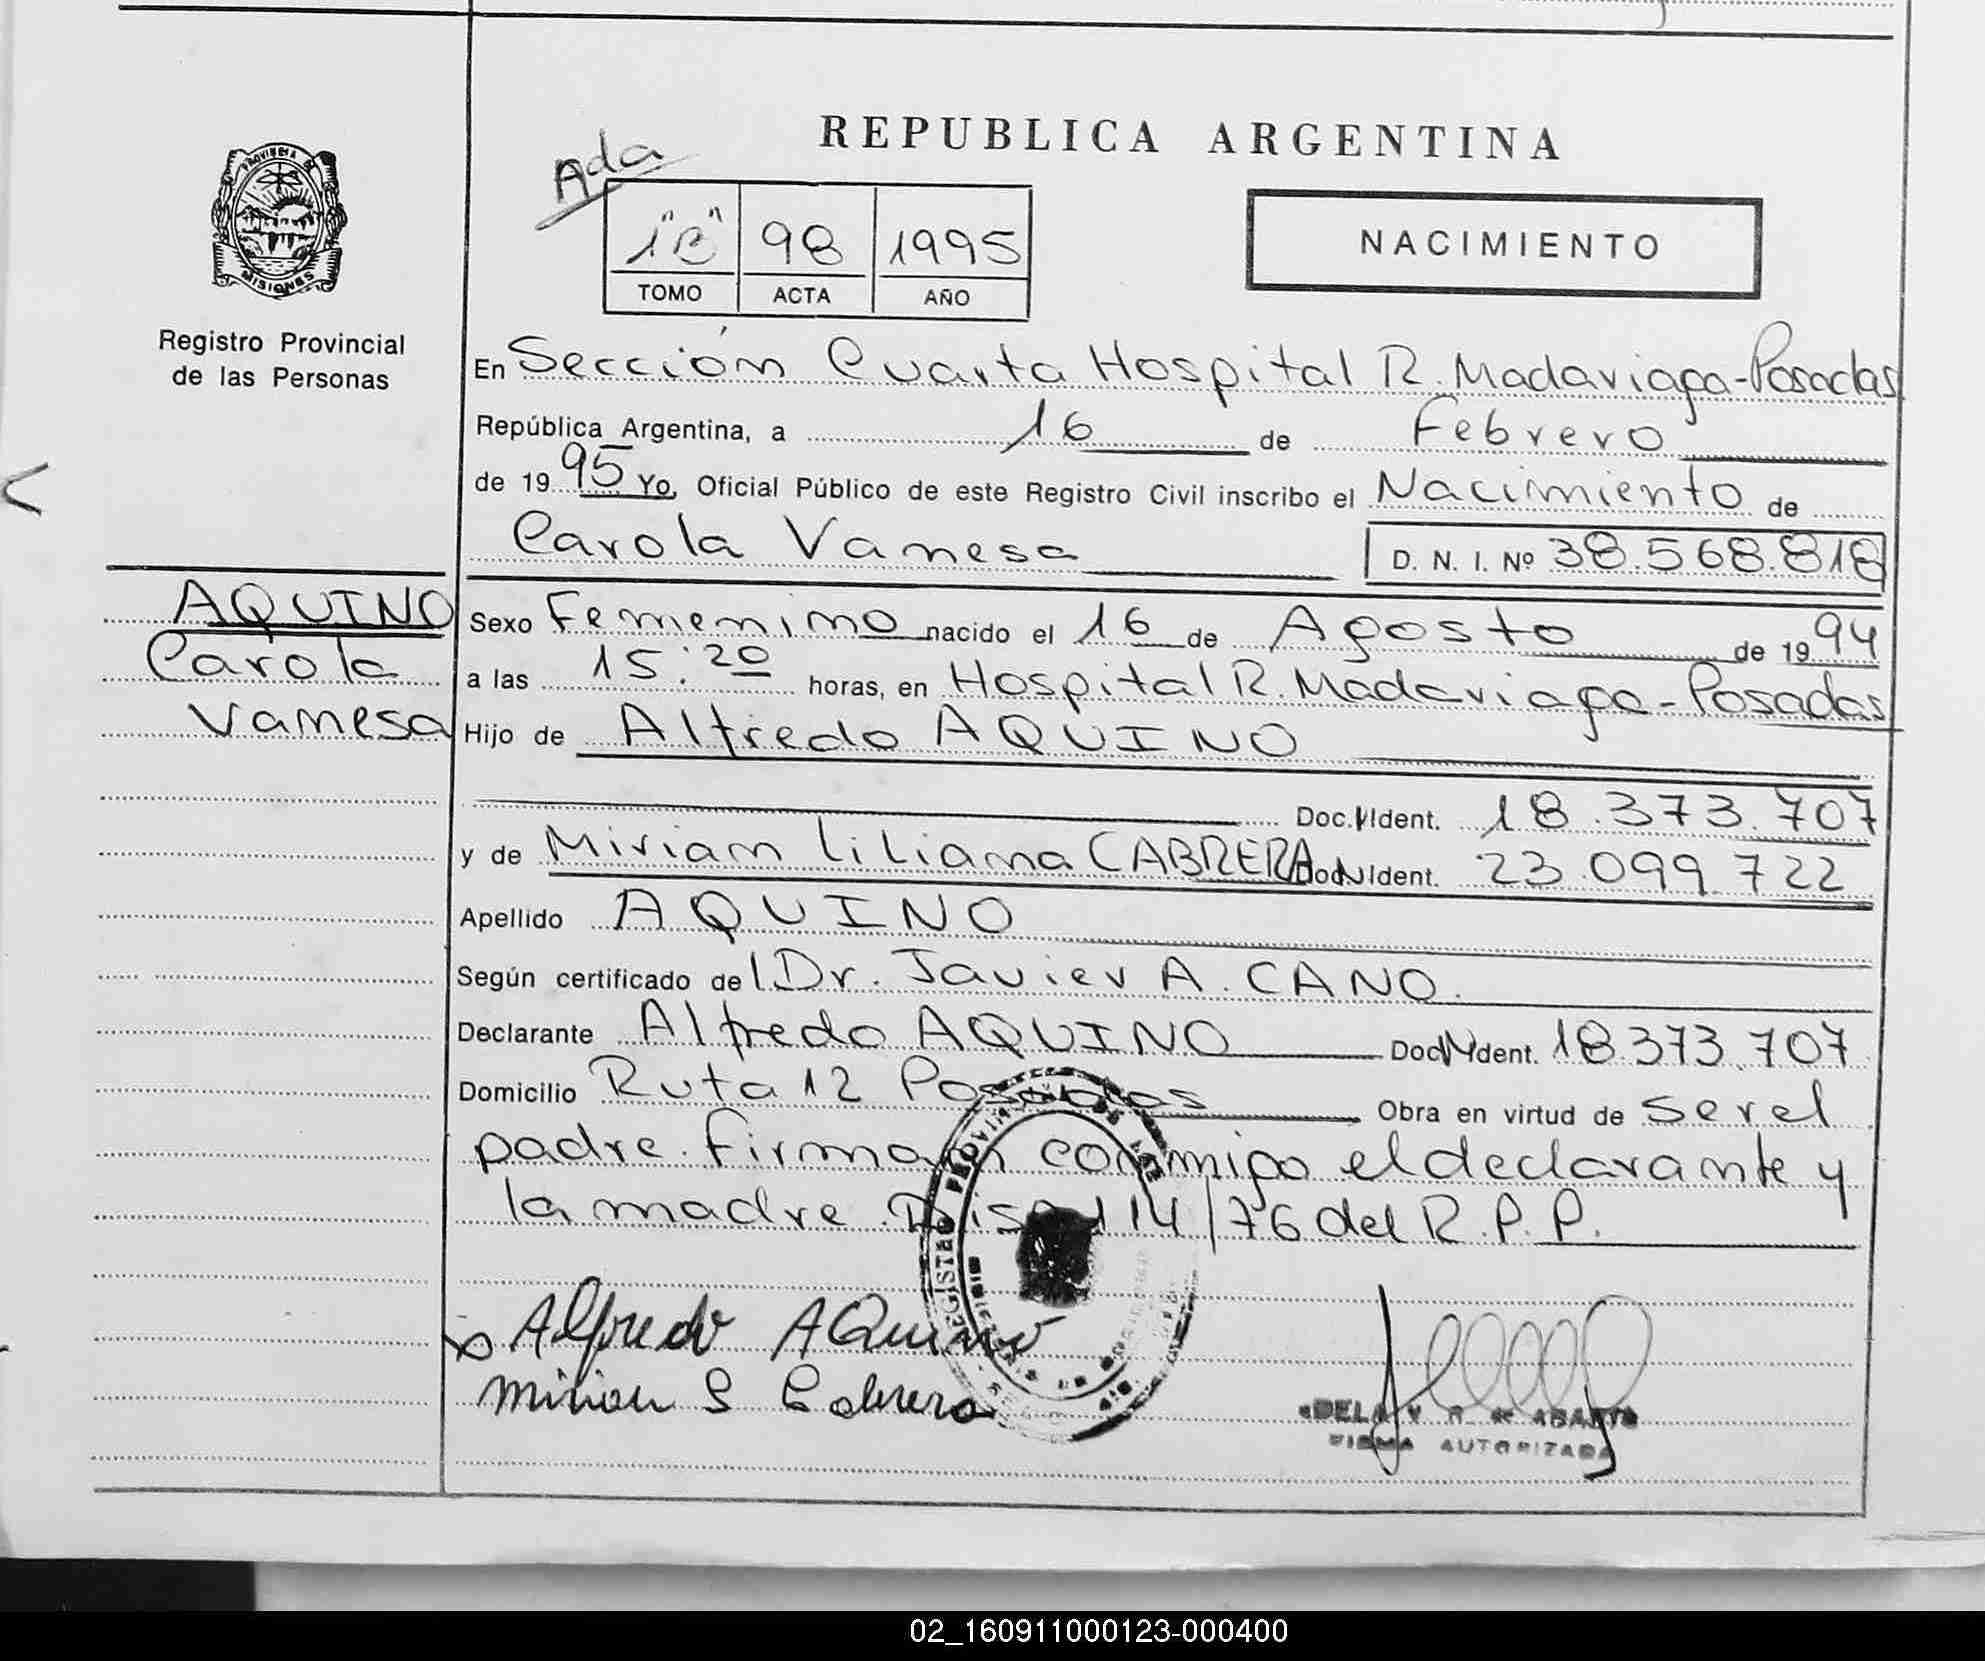 REPUBLICA ARGENTINA
Ada
"
"
1B 98 1995
TOMO ACTA AÑO
NACIMIENTO
PROVINCIA DE
MISIONES
Registro Provincial
de las Personas
En Sección Cuarta Hospital R. Madariaga-Posadas
República Argentina, a 16 de Febrero
de 1995 Yo, Oficial Público de este Registro Civil inscribo el Nacimiento de
Carola Vanesa D. N. I. Nº 38.568.818
AQUINO
Carola
Vanesa
Sexo Femenino nacido el 16 de Agosto de 1994
a las 15:20 horas, en Hospital R. Madariaga-Posadas
Hijo de Alfredo AQUINO
Doc. Ident. 18.373.707
y de Miriam Liliana CABRERA Doc. Ident. 23.099.722
Apellido AQUINO
Según certificado del Dr. Javier A. CANO.
Declarante Alfredo AQUINO Doc. Ident. 18.373.707
Domicilio Ruta 12 Posadas Obra en virtud de ser el
padre. Firman conmigo el declarante y
la madre. Disp. 114/76 del R.P.P.
Alfredo AQuino
Miriam L Cabrera
FIRMA AUTORIZADA
02_160911000123-000400